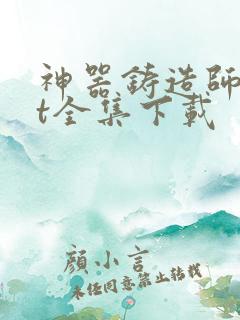 神器铸造師
t全集下載
顏小言
未经同意禁止转载